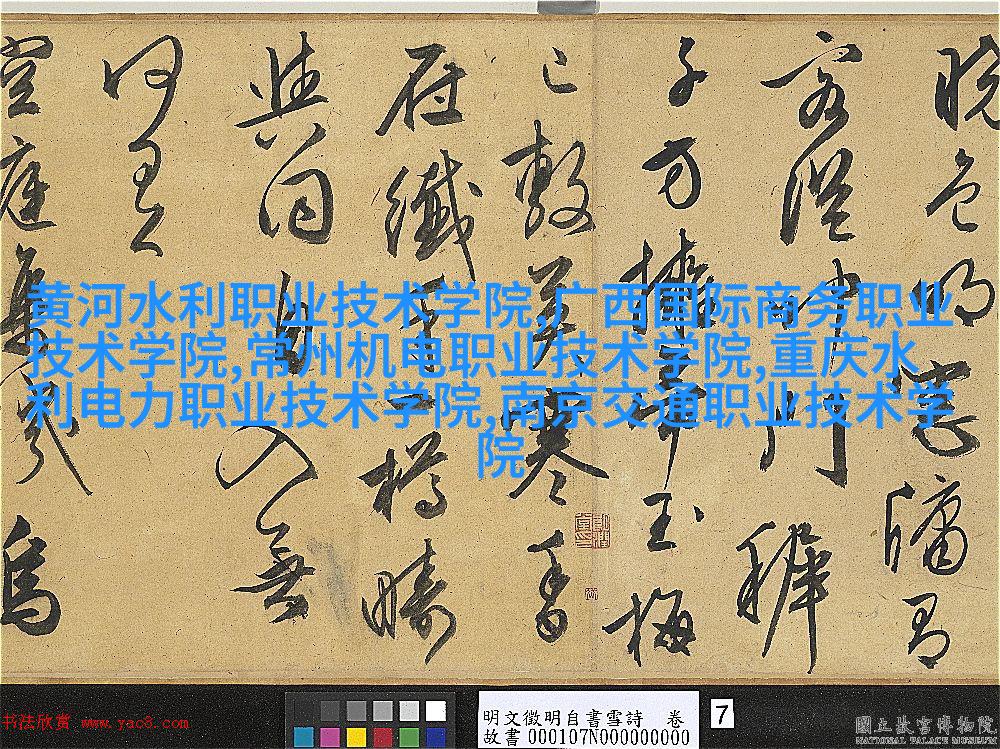 黄河水利职业技术学院,广西国际商务职业
技术学院,常州机电职业技术学院,重庆水
利电力职业技术学院,南京交通职业技术学
院
色明牖
中門稚
子方擁帚玉梅
已敷萼寒香
纖樽疇
與同自入無
何
庭集烏
书法欣赏 www.yac8.com
明文徵明自書雪詩 卷
故書 000107N000000000
7
國立故宮博物院
NATIONAL PALACE MUSEUM